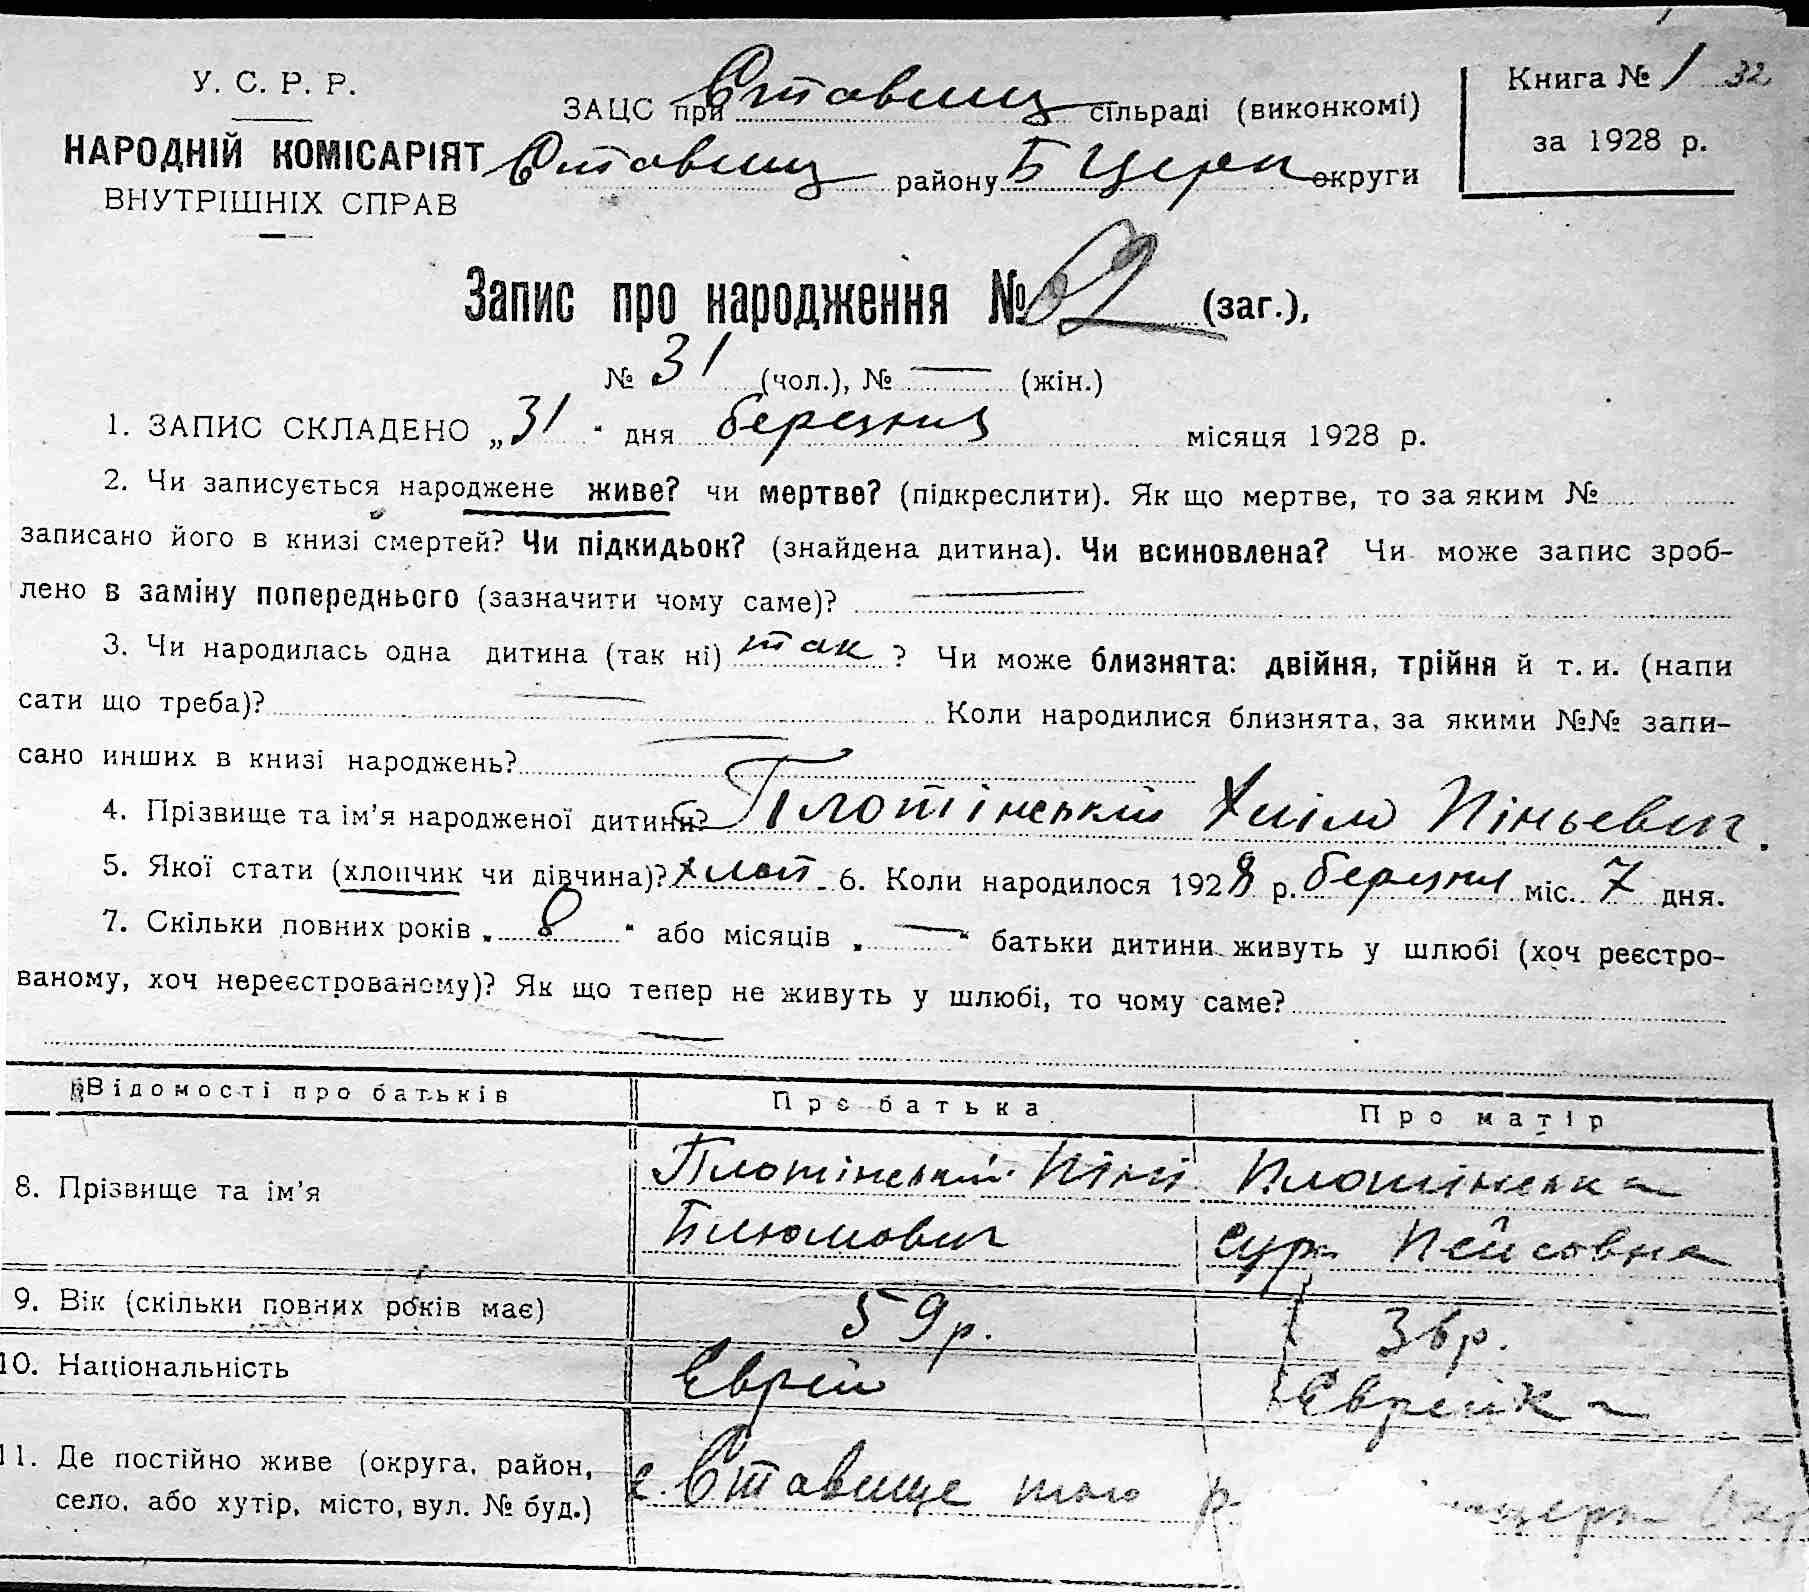 У. С. Р. Р.
НАРОДНІЙ КОМІСАРІЯТ
ВНУТРІШНІХ СПРАВ
ЗАЦС при Ставищ сільраді (виконкомі)
Ставищ району Б Церк округи
Книга № 1 32
за 1928 р.
Запис про народження № 62 (заг.),
№ 31 (чол.), № — (жін.)
1. ЗАПИС СКЛАДЕНО „31“ дня березня місяця 1928 р.
2. Чи записується народжене живе? чи мертве? (підкреслити). Як що мертве, то за яким №
записано його в книзі смертей? Чи підкидьок? (знайдена дитина). Чи всиновлена? Чи може запис зроб-
лено в заміну попереднього (зазначити чому саме)? —
3. Чи народилась одна дитина (так ні) так ? Чи може близнята: двійня, трійня й т. и. (напи
сати що треба)? — Коли народилися близнята, за якими №№ запи-
сано инших в книзі народжень? —
4. Прізвище та ім’я народженої дитини? Плотінський Хиіл Піньевич.
5. Якої стати (хлопчик чи дівчина)? хлоп. 6. Коли народилося 1928 р. березня міс. 7 дня.
7. Скільки повних років „ 8 “ або місяців „ — “ батьки дитини живуть у шлюбі (хоч реєстро-
ваному, хоч нереєстрованому)? Як що тепер не живуть у шлюбі, то чому саме?
—
Відомості про батьків Про батька Про матір
8. Прізвище та ім’я Плотінський Піня Плотінська
Блюмович Сура Пейсовна
9. Вік (скільки повних років має) 59 р. 36 р.
10. Національність Еврей Еврейка
11. Де постійно живе (округа, район, с. Ставище того р.
село, або хутір, місто, вул. № буд.)